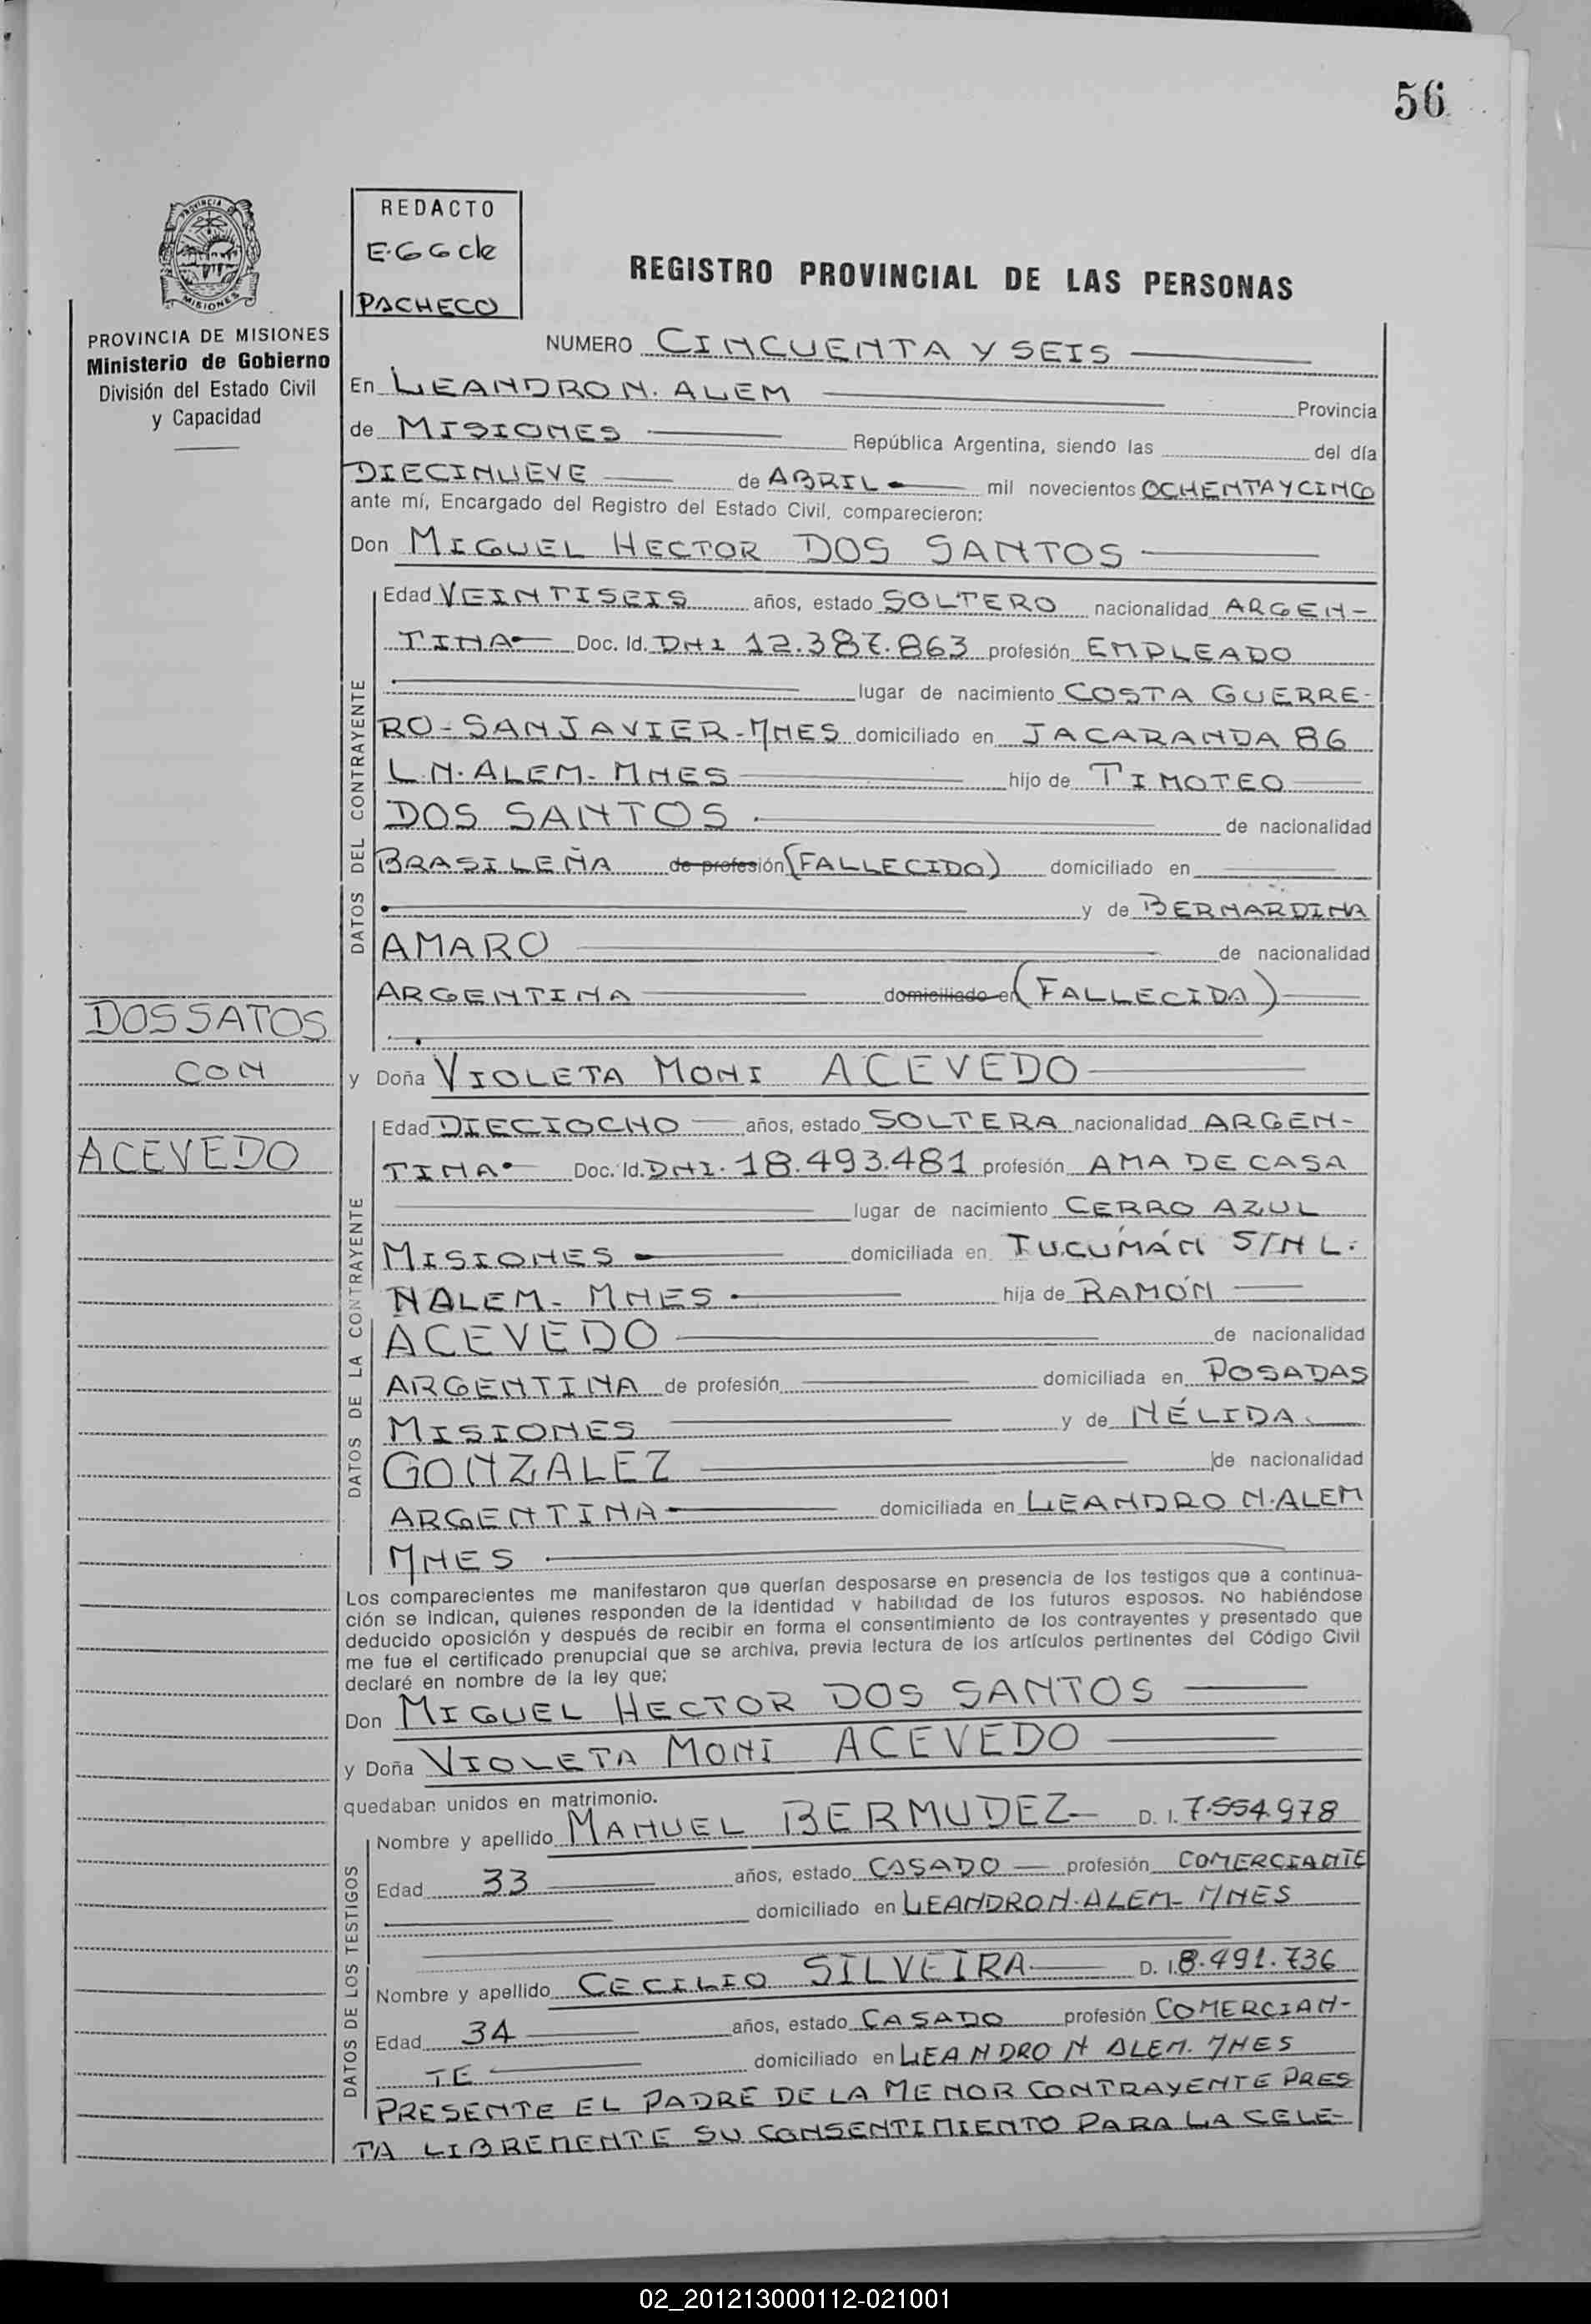 56
REDACTO
E.GG de
PACHECO
REGISTRO PROVINCIAL DE LAS PERSONAS
PROVINCIA DE MISIONES
Ministerio de Gobierno
División del Estado Civil
y Capacidad
NUMERO CINCUENTA Y SEIS
En LEANDRO N. ALEM Provincia
de MISIONES República Argentina, siendo las del día
DIECINUEVE de ABRIL mil novecientos OCHENTA Y CINCO
ante mí, Encargado del Registro del Estado Civil, comparecieron:
Don MIGUEL HECTOR DOS SANTOS
DATOS DEL CONTRAYENTE
Edad VEINTISEIS años, estado SOLTERO nacionalidad ARGEN-
TINA Doc. Id. DNI 12.387.863 profesión EMPLEADO
lugar de nacimiento COSTA GUERRE-
RO-SAN JAVIER-MNES domiciliado en JACARANDA 86
L.N. ALEM- MNES hijo de TIMOTEO
DOS SANTOS de nacionalidad
BRASILEÑA de profesión (FALLECIDO) domiciliado en
y de BERNARDINA
AMARO de nacionalidad
ARGENTINA domiciliado en (FALLECIDA)
DOS SATOS
CON
ACEVEDO
y Doña VIOLETA MONI ACEVEDO
DATOS DE LA CONTRAYENTE
Edad DIECIOCHO años, estado SOLTERA nacionalidad ARGEN-
TINA Doc. Id. DNI. 18.493.481 profesión AMA DE CASA
lugar de nacimiento CERRO AZUL
MISIONES domiciliada en TUCUMÁN S/N L.
N ALEM- MNES hija de RAMÓN
ACEVEDO de nacionalidad
ARGENTINA de profesión domiciliada en POSADAS
MISIONES y de NÉLIDA
GONZALEZ de nacionalidad
ARGENTINA domiciliada en LEANDRO N. ALEM
MNES
Los comparecientes me manifestaron que querían desposarse en presencia de los testigos que a continua-
ción se indican, quienes responden de la identidad y habilidad de los futuros esposos. No habiéndose
deducido oposición y después de recibir en forma el consentimiento de los contrayentes y presentado que
me fue el certificado prenupcial que se archiva, previa lectura de los artículos pertinentes del Código Civil
declaré en nombre de la ley que:
Don MIGUEL HECTOR DOS SANTOS
y Doña VIOLETA MONI ACEVEDO
quedaban unidos en matrimonio.
DATOS DE LOS TESTIGOS
Nombre y apellido MANUEL BERMUDEZ D. I. 7.554.978
Edad 33 años, estado CASADO profesión COMERCIANTE
domiciliado en LEANDRO N. ALEM- MNES
Nombre y apellido CECILIO SILVEIRA D. I. 8.491.736
Edad 34 años, estado CASADO profesión COMERCIAN-
TE domiciliado en LEANDRO N ALEM. MNES
PRESENTE EL PADRE DE LA MENOR CONTRAYENTE PRES
TA LIBREMENTE SU CONSENTIMIENTO PARA LA CELE-
02_201213000112-021001